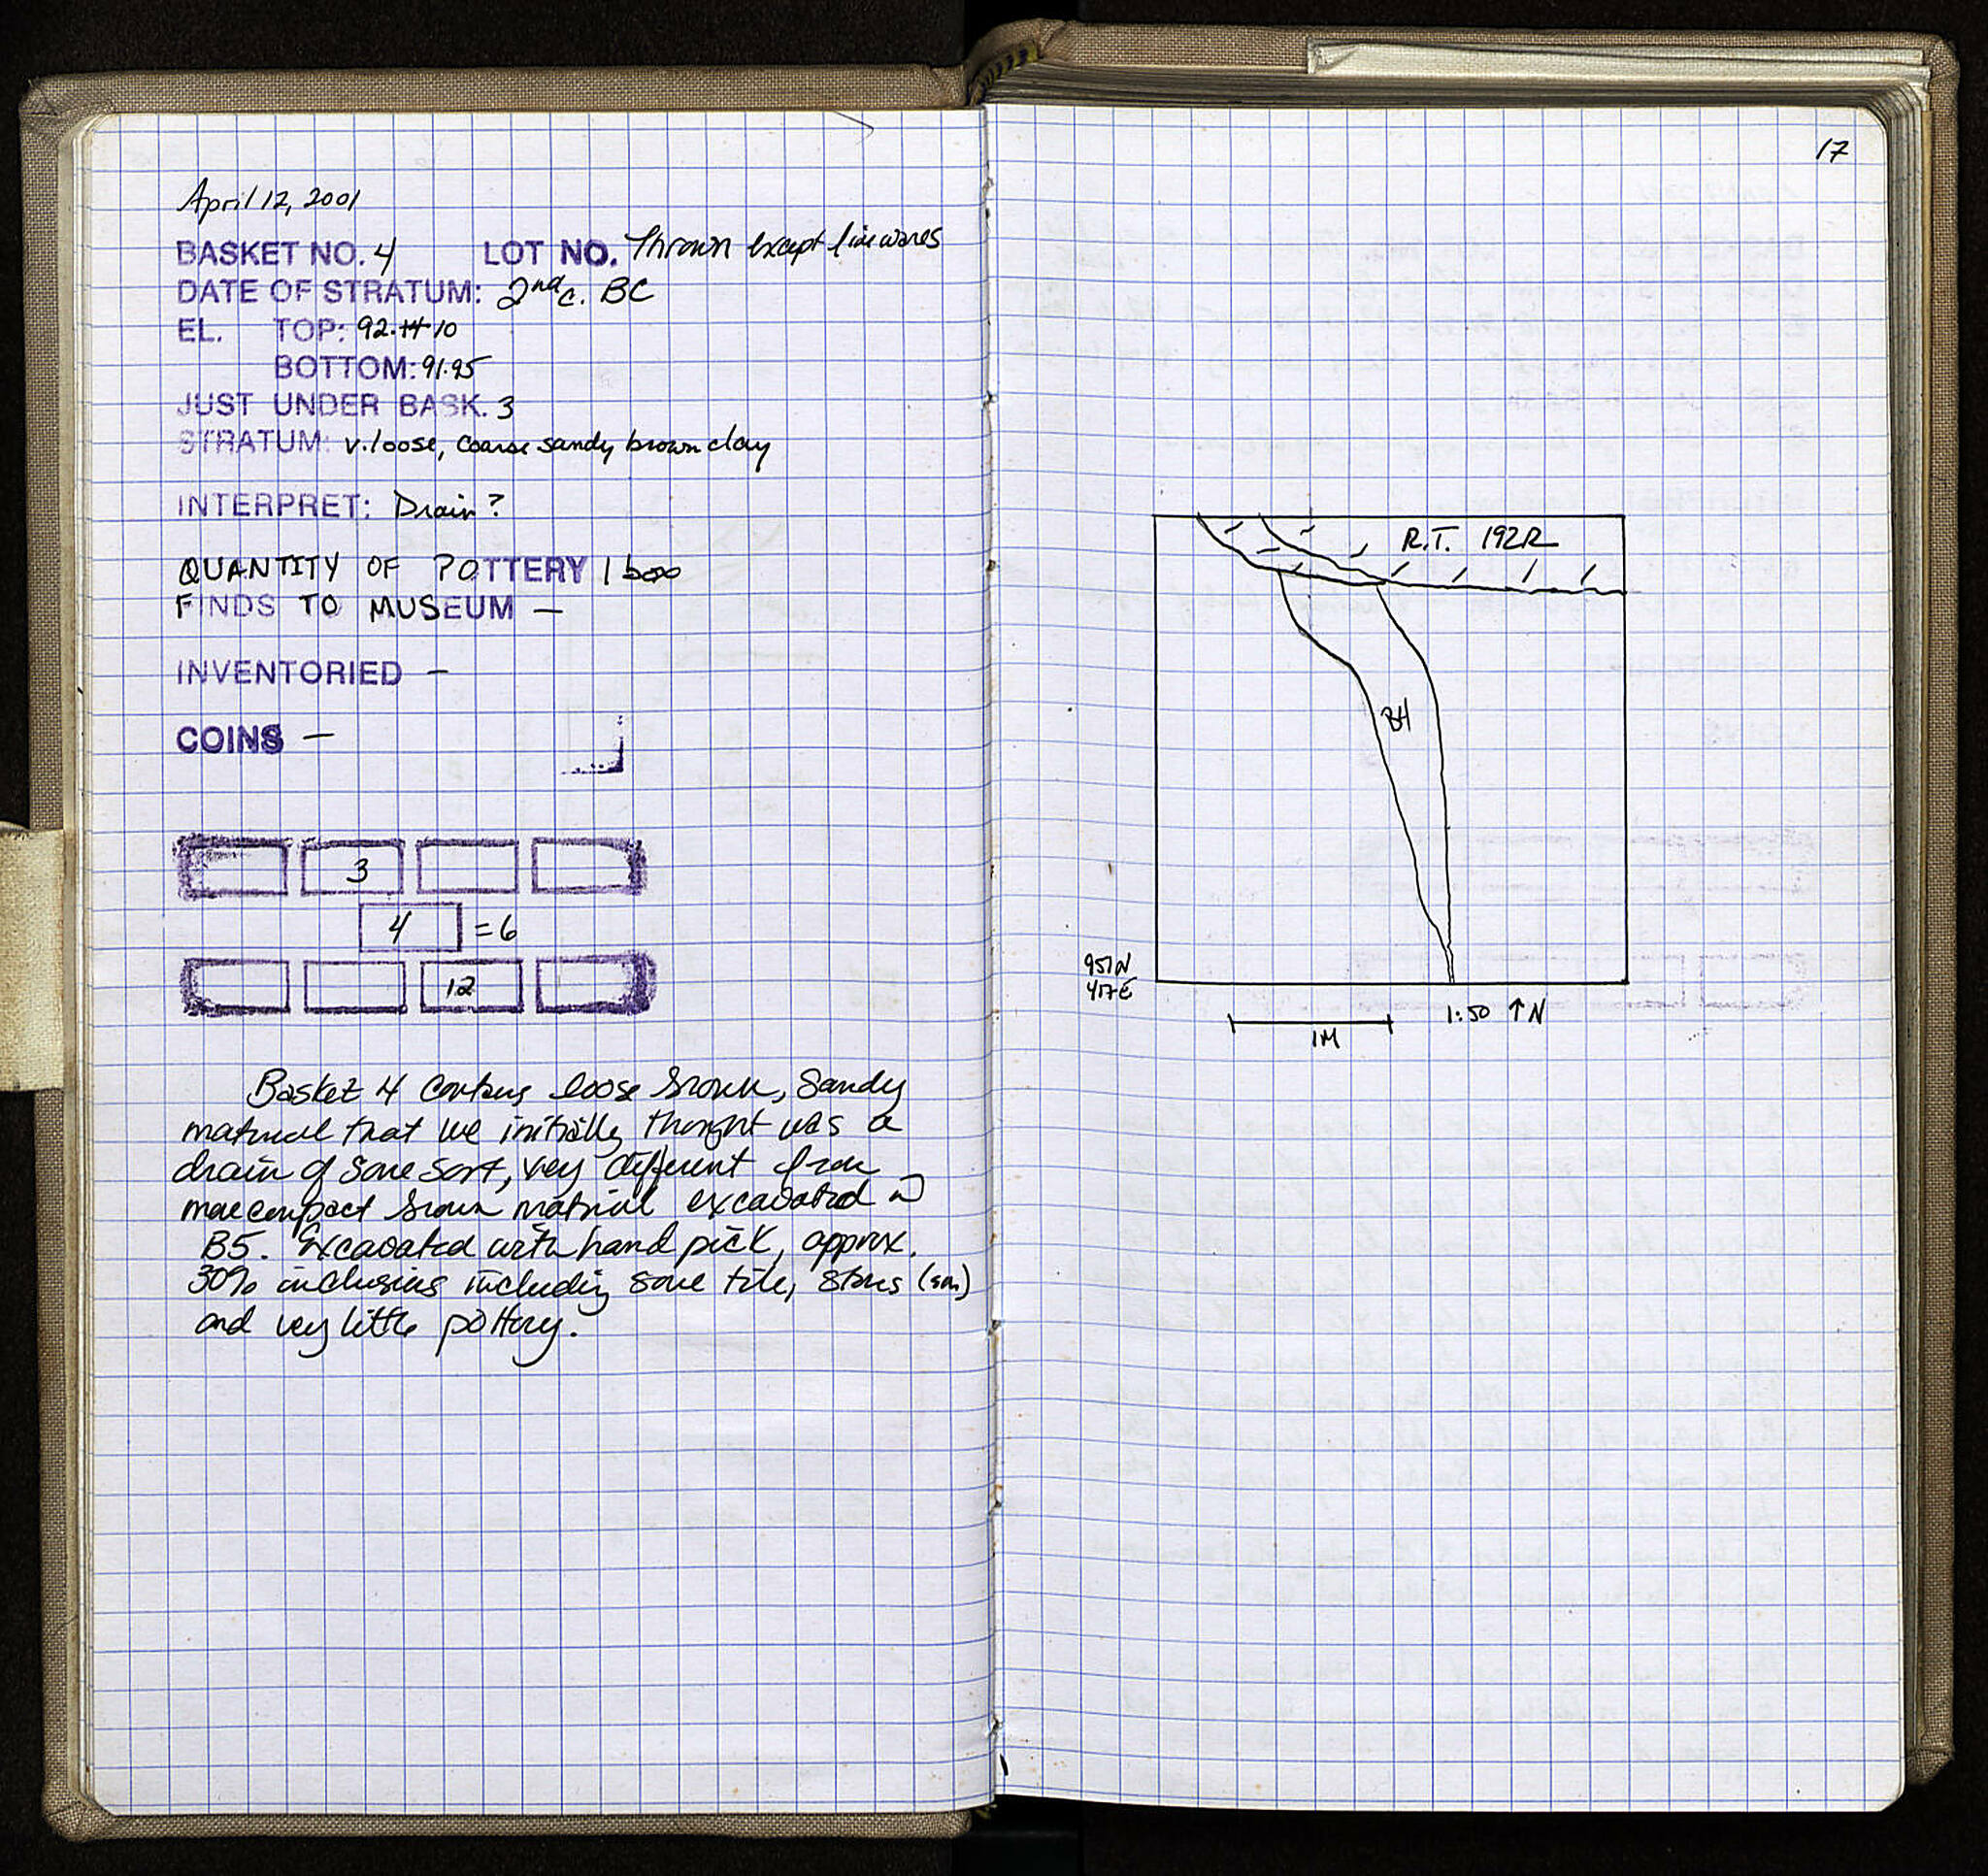 April 12, 2001
BASKET NO. 4 LOT NO. Thrown except finewares
DATE OF STRATUM: 2nd c. BC
EL. TOP: 92.10
BOTTOM: 91.95
JUST UNDER BASK. 3
STRATUM: v. loose, coarse sandy brown clay
INTERPRET: Drain?
QUANTITY OF POTTERY 1 box
FINDS TO MUSEUM —
INVENTORIED —
COINS —
3
4 = 6
12
Basket 4 contains loose brown, sandy
material that we initially thought was a
drain of some sort, very different from
more compact brown material excavated in
B5. Excavated with hand pick, approx.
30% inclusions including some tile, stones (sm)
and very little pottery.
17
R.T. 1922
B4
951N
417E
1M
1:50 ↑N